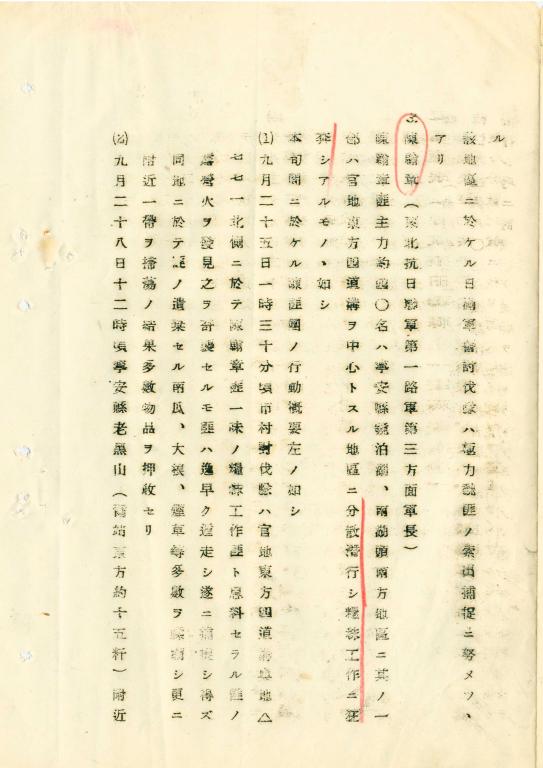 ル
該地區ニ於ケル日滿軍警討伐隊ハ極力該匪ノ索出捕捉ニ努メツヽ
アリ
3.陳翰章(東北抗日聯軍第一路軍第三方面軍長)
陳翰章匪主力約四〇名ハ寧安縣鏡泊湖、南湖頭南方地區ニ其ノ一
部ハ官地東方四道溝ヲ中心トスル地區ニ分散潜行シ糧秣工作ニ狂
奔シアルモノヽ如シ
本旬間ニ於ケル該匪團ノ行動概要左ノ如シ
(1)九月二十五日一時三十分頃市村討伐隊ハ官地東方四道溝高地△
七七一北側ニ於テ陳翰章匪一味ノ糧秣工作匪ト思料セラルル匪ノ
露營火ヲ發見之ヲ奇襲セルモ匪ハ逸早ク逃走シ遂ニ捕捉シ得ズ
同地ニ於テ匪ノ遺棄セル南瓜、大根、煙草等多數ヲ鹵獲シ更ニ
附近一帶ヲ掃蕩ノ結果多數物品ヲ押收セリ
(2)九月二十八日十二時頃寧安縣老黑山(東方約十五粁)附近